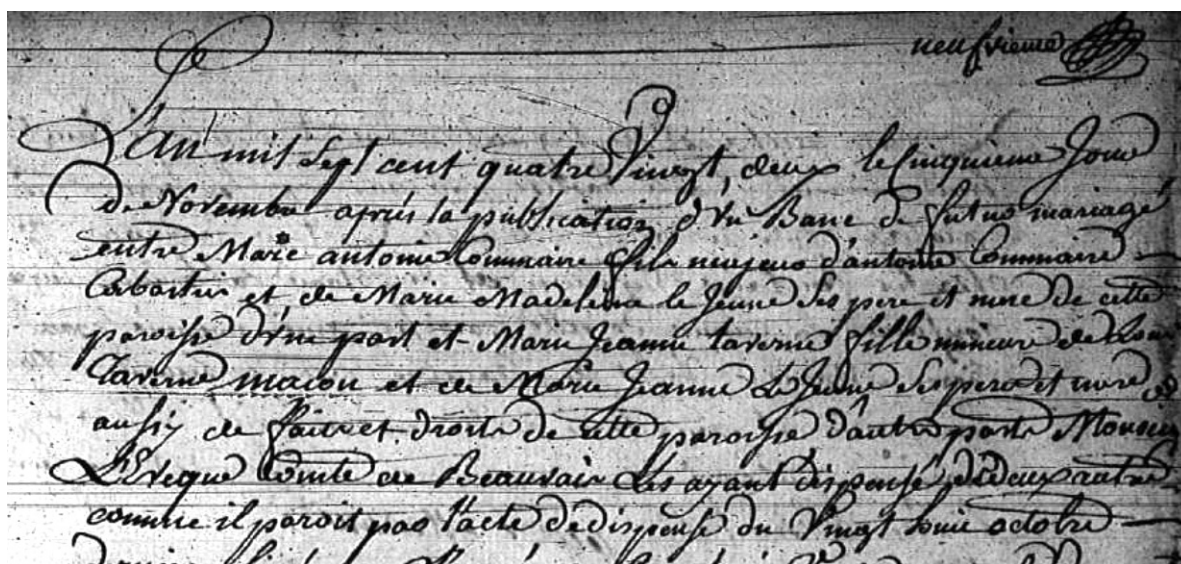 neufvieme
L'an mil sept cent quatre Vingt, deux le Cinquieme Jour
de Novembre aprés la publication d'un Banc de futur mariage
entre Marc antoine Commaire fils majeur d'antoine Commaire
et de Marie Madeleine le Jeune ses pere et mere de cette
paroisse d'une part et Marie Jeanne taverne fille mineure de Louis
Taverne maçon et de Marie Jeanne Le Jeune ses pere et mere
aussy de fait et droits de cette paroisse d'autre part
L'Eveque Comte de Beauvais Les ayant dispensé de deux autre
comme il paroit par l'acte de dispense du Vingt octobre